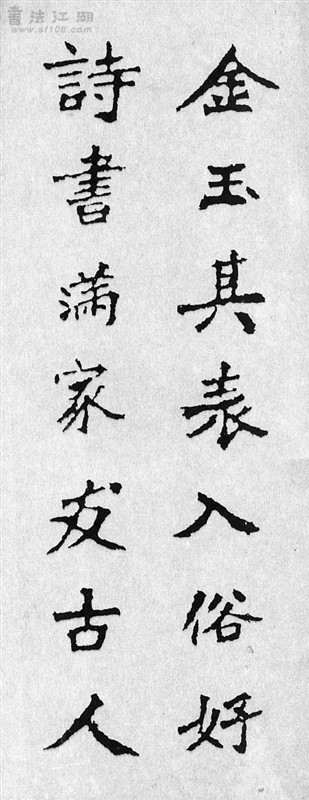 書法江湖
www.sf108.com
金玉其表入俗好
詩書滿家友古人